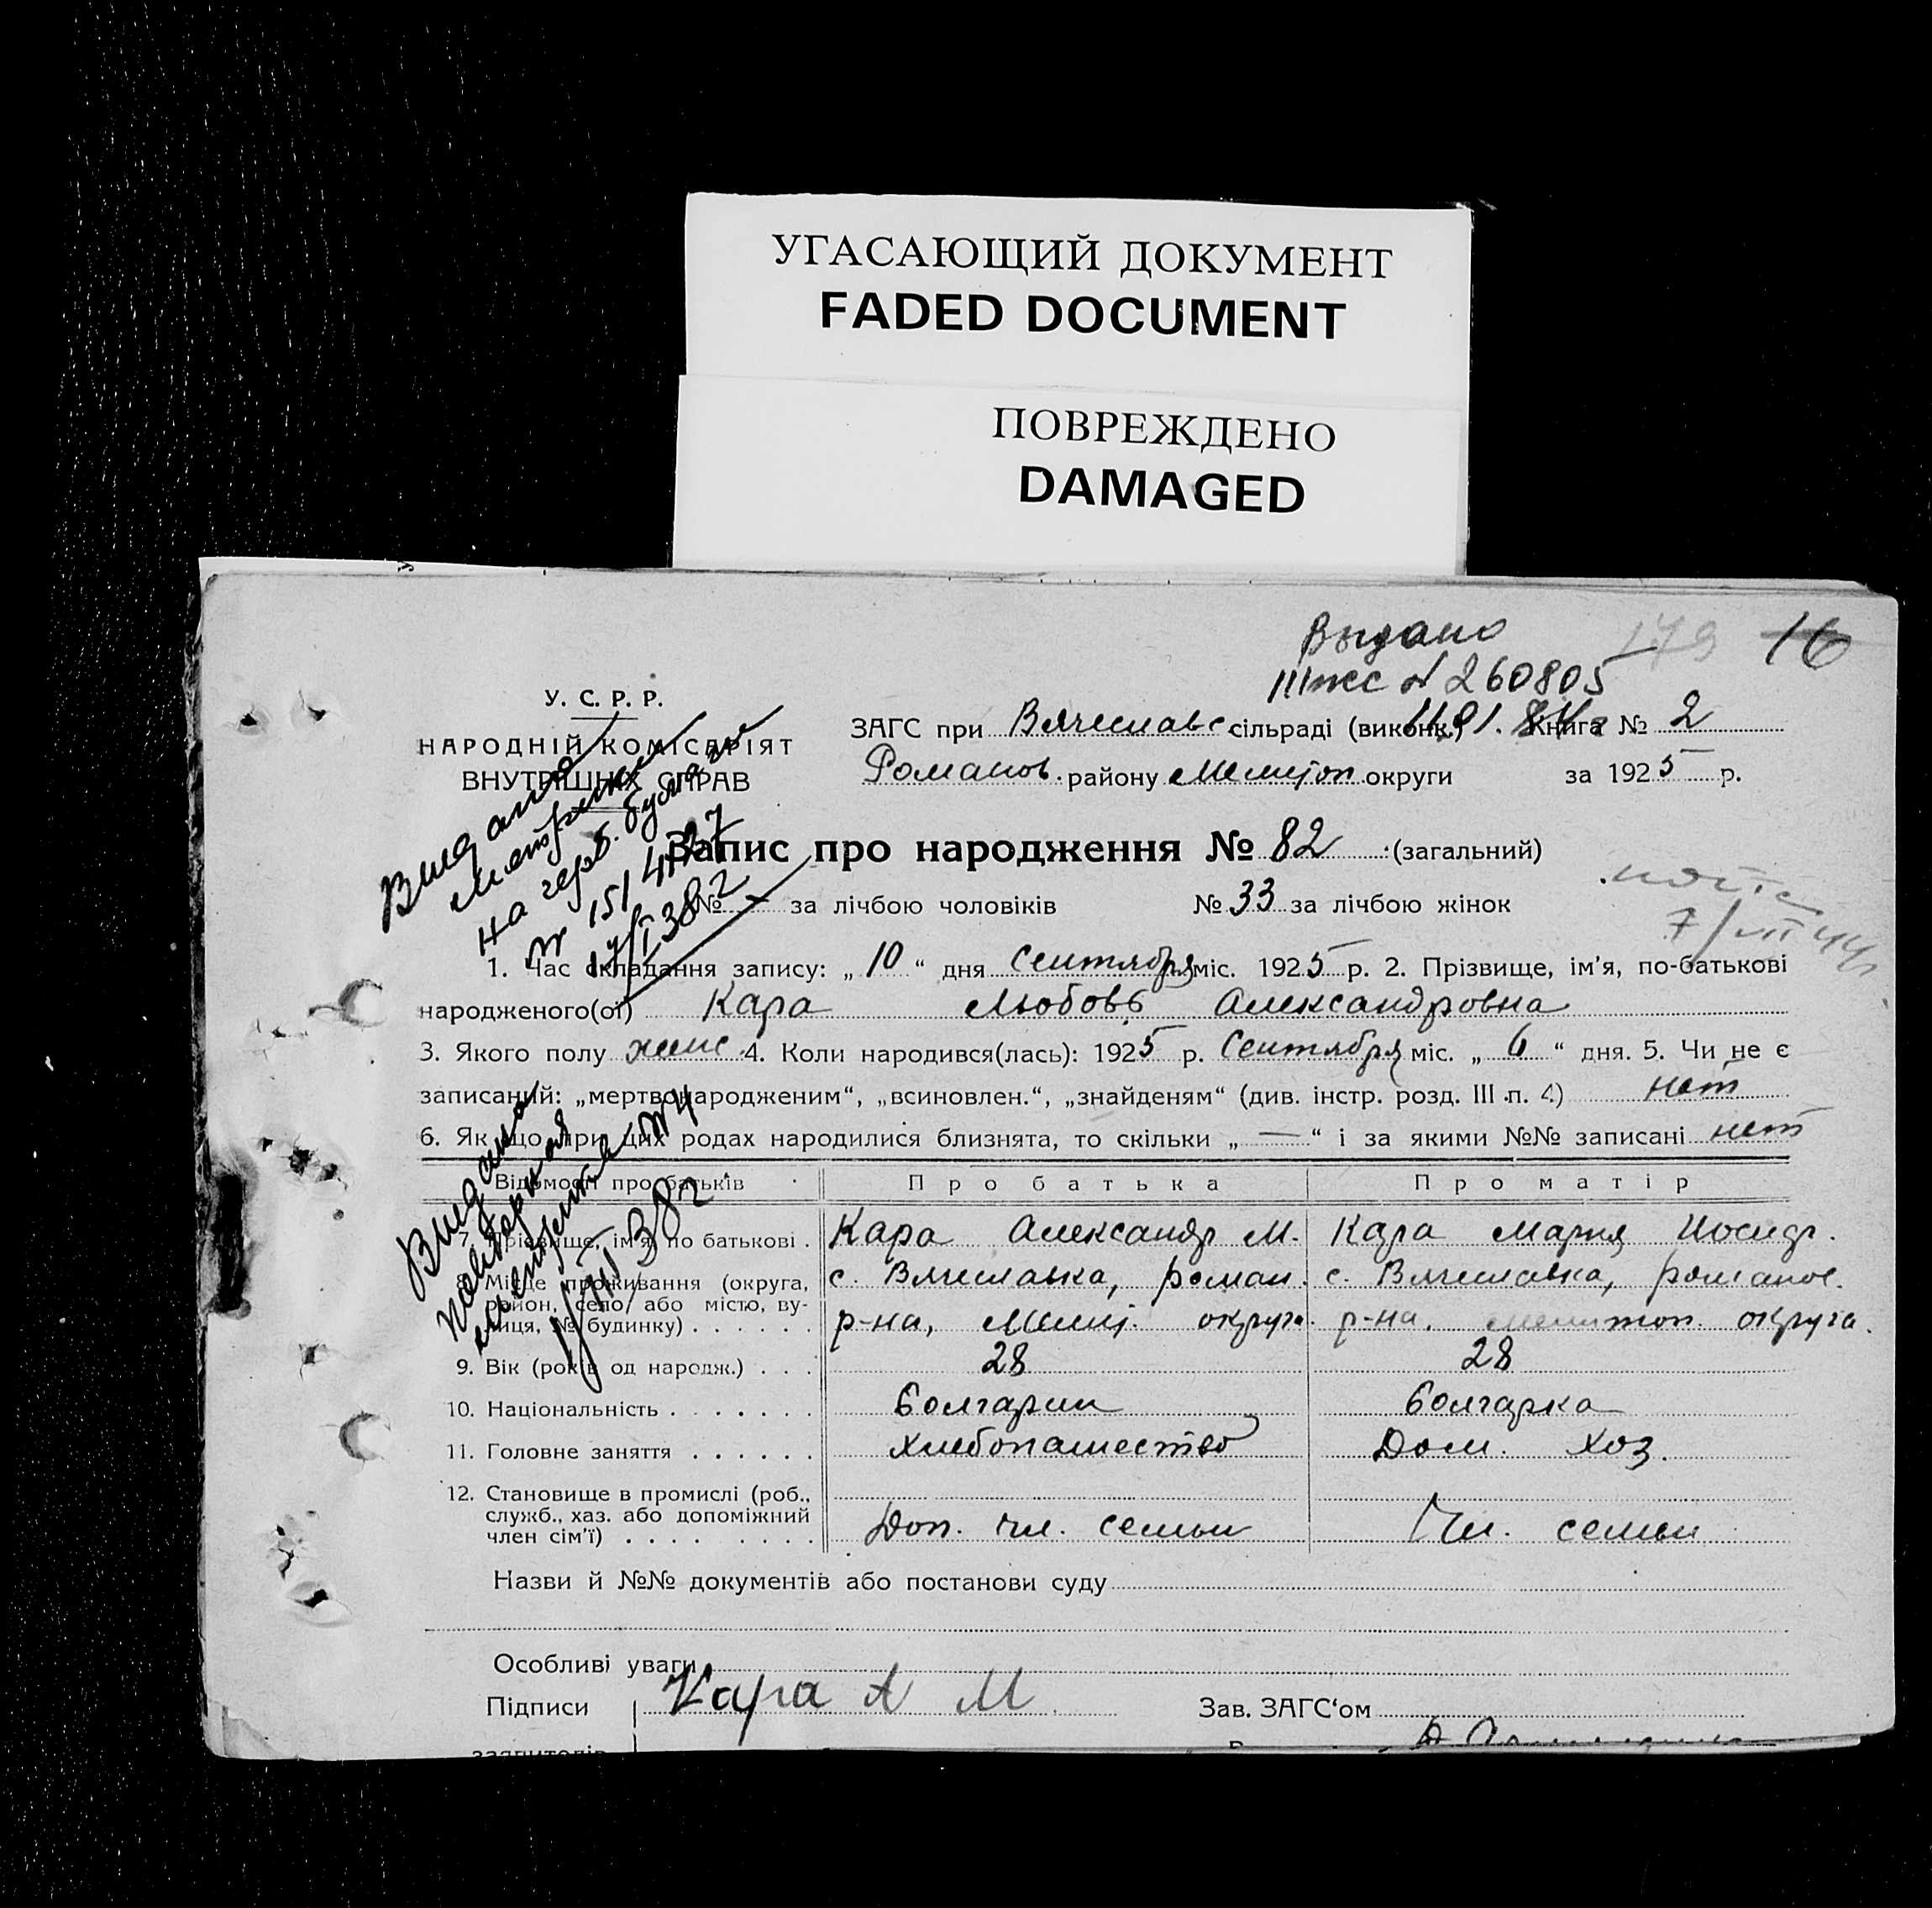 УГАСАЮЩИЙ ДОКУМЕНТ
FADED DOCUMENT
ПОВРЕЖДЕНО
DAMAGED
Выдано
179 16
№ 260805
У. С. Р. Р.
НАРОДНІЙ КОМІСАРІЯТ
ВНУТРІШНІХ СПРАВ
ЗАГС при Вячеславс. сільраді (виконк.) Книга № 2
Романов. району Мелитоп. округи за 1925 р.
Видана
метрика
на герб. бумагу
№ 151
Запис про народження № 82 (загальний)
№ — за лічбою чоловіків № 33 за лічбою жінок
7/VII 44
1. Час складання запису: „ 10 “ дня Сентября міс. 1925 р. 2. Прізвище, ім’я, по-батькові
народженого(ої) Кара Любовь Александровна
3. Якого полу женс. 4. Коли народився(лась): 1925 р. Сентября міс. „ 6 “ дня. 5. Чи не є
записаний: „мертвонародженим“, „всиновлен.“, „знайденям“ (див. інстр. розд. III п. 4) нет
6. Як що при цих родах народилися близнята, то скільки „ — “ і за якими №№ записані нет
Видана
повторная
метрика № 4
38 г
Відомості про батьків Про батька Про матір
7. Прізвище, ім’я, по батькові . Кара Александр М. Кара Мария Иосиф.
8. Місце проживання (округа, с. Вячеславка, роман. с. Вячеславка, романов.
район, село або місто, ву-
лиця, № будинку) . . . . . . р-на, Мелит. округа. р-на. мелитоп. округа.
9. Вік (років од народж.) . . . 28 28
10. Національність . . . . . . . болгарин болгарка
11. Головне заняття . . . . . . хлебопашество Дом. хоз.
12. Становище в промислі (роб.,
служб., хаз. або допоміжний
член сім’ї) . . . . . . . . Доп. чл. семьи Чл. семьи
Назви й №№ документів або постанови суду
Особливі уваги
Підписи Кара А М Зав. ЗАГС‘ом
заявителів